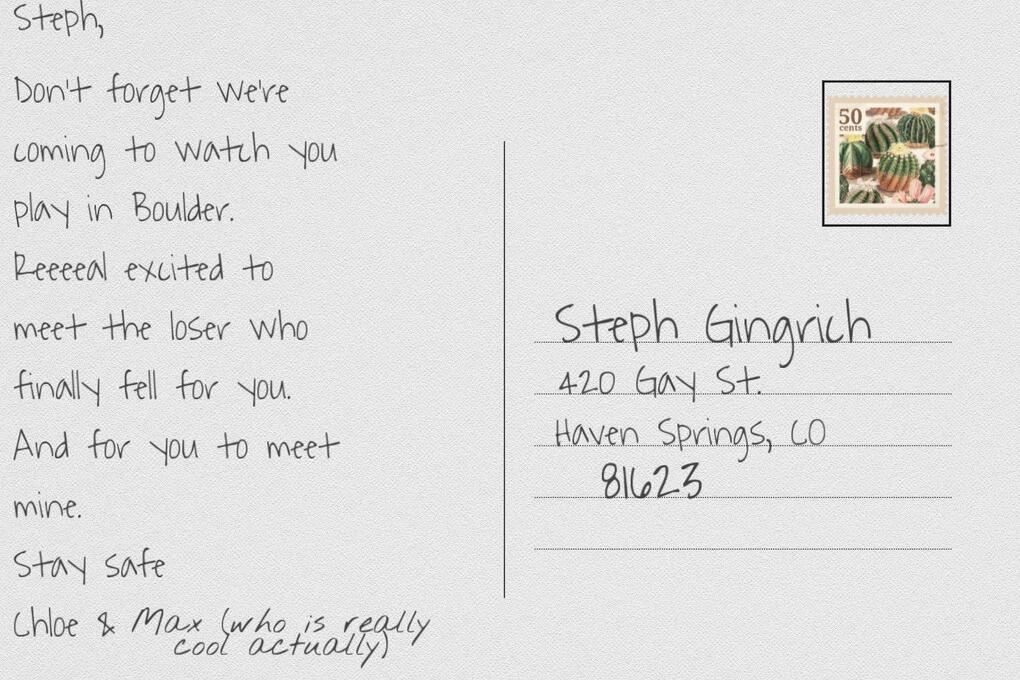 Steph,
Don't forget we're
coming to watch you
play in Boulder.
Reeeeal excited to
meet the loser who
finally fell for you.
And for you to meet
mine.
Stay safe
Chloe & Max (who is really
cool actually)
50
cents
Steph Gingrich
420 Gay St.
Haven Springs, CO
81623